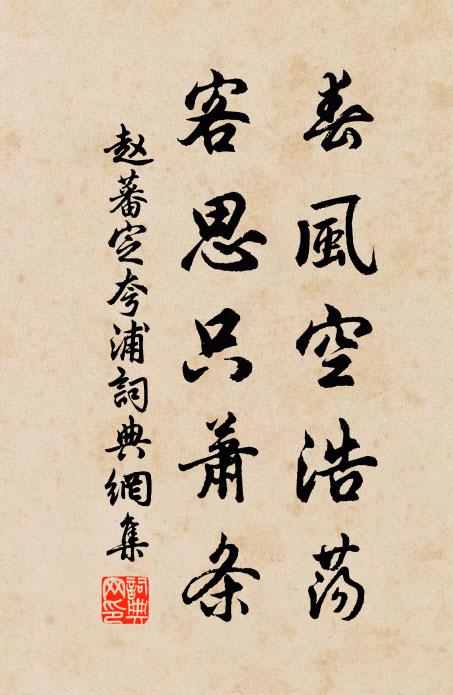 春風空浩蕩
客思只蕭条
赵蕃定夸浦詞典網集
詞典
网印